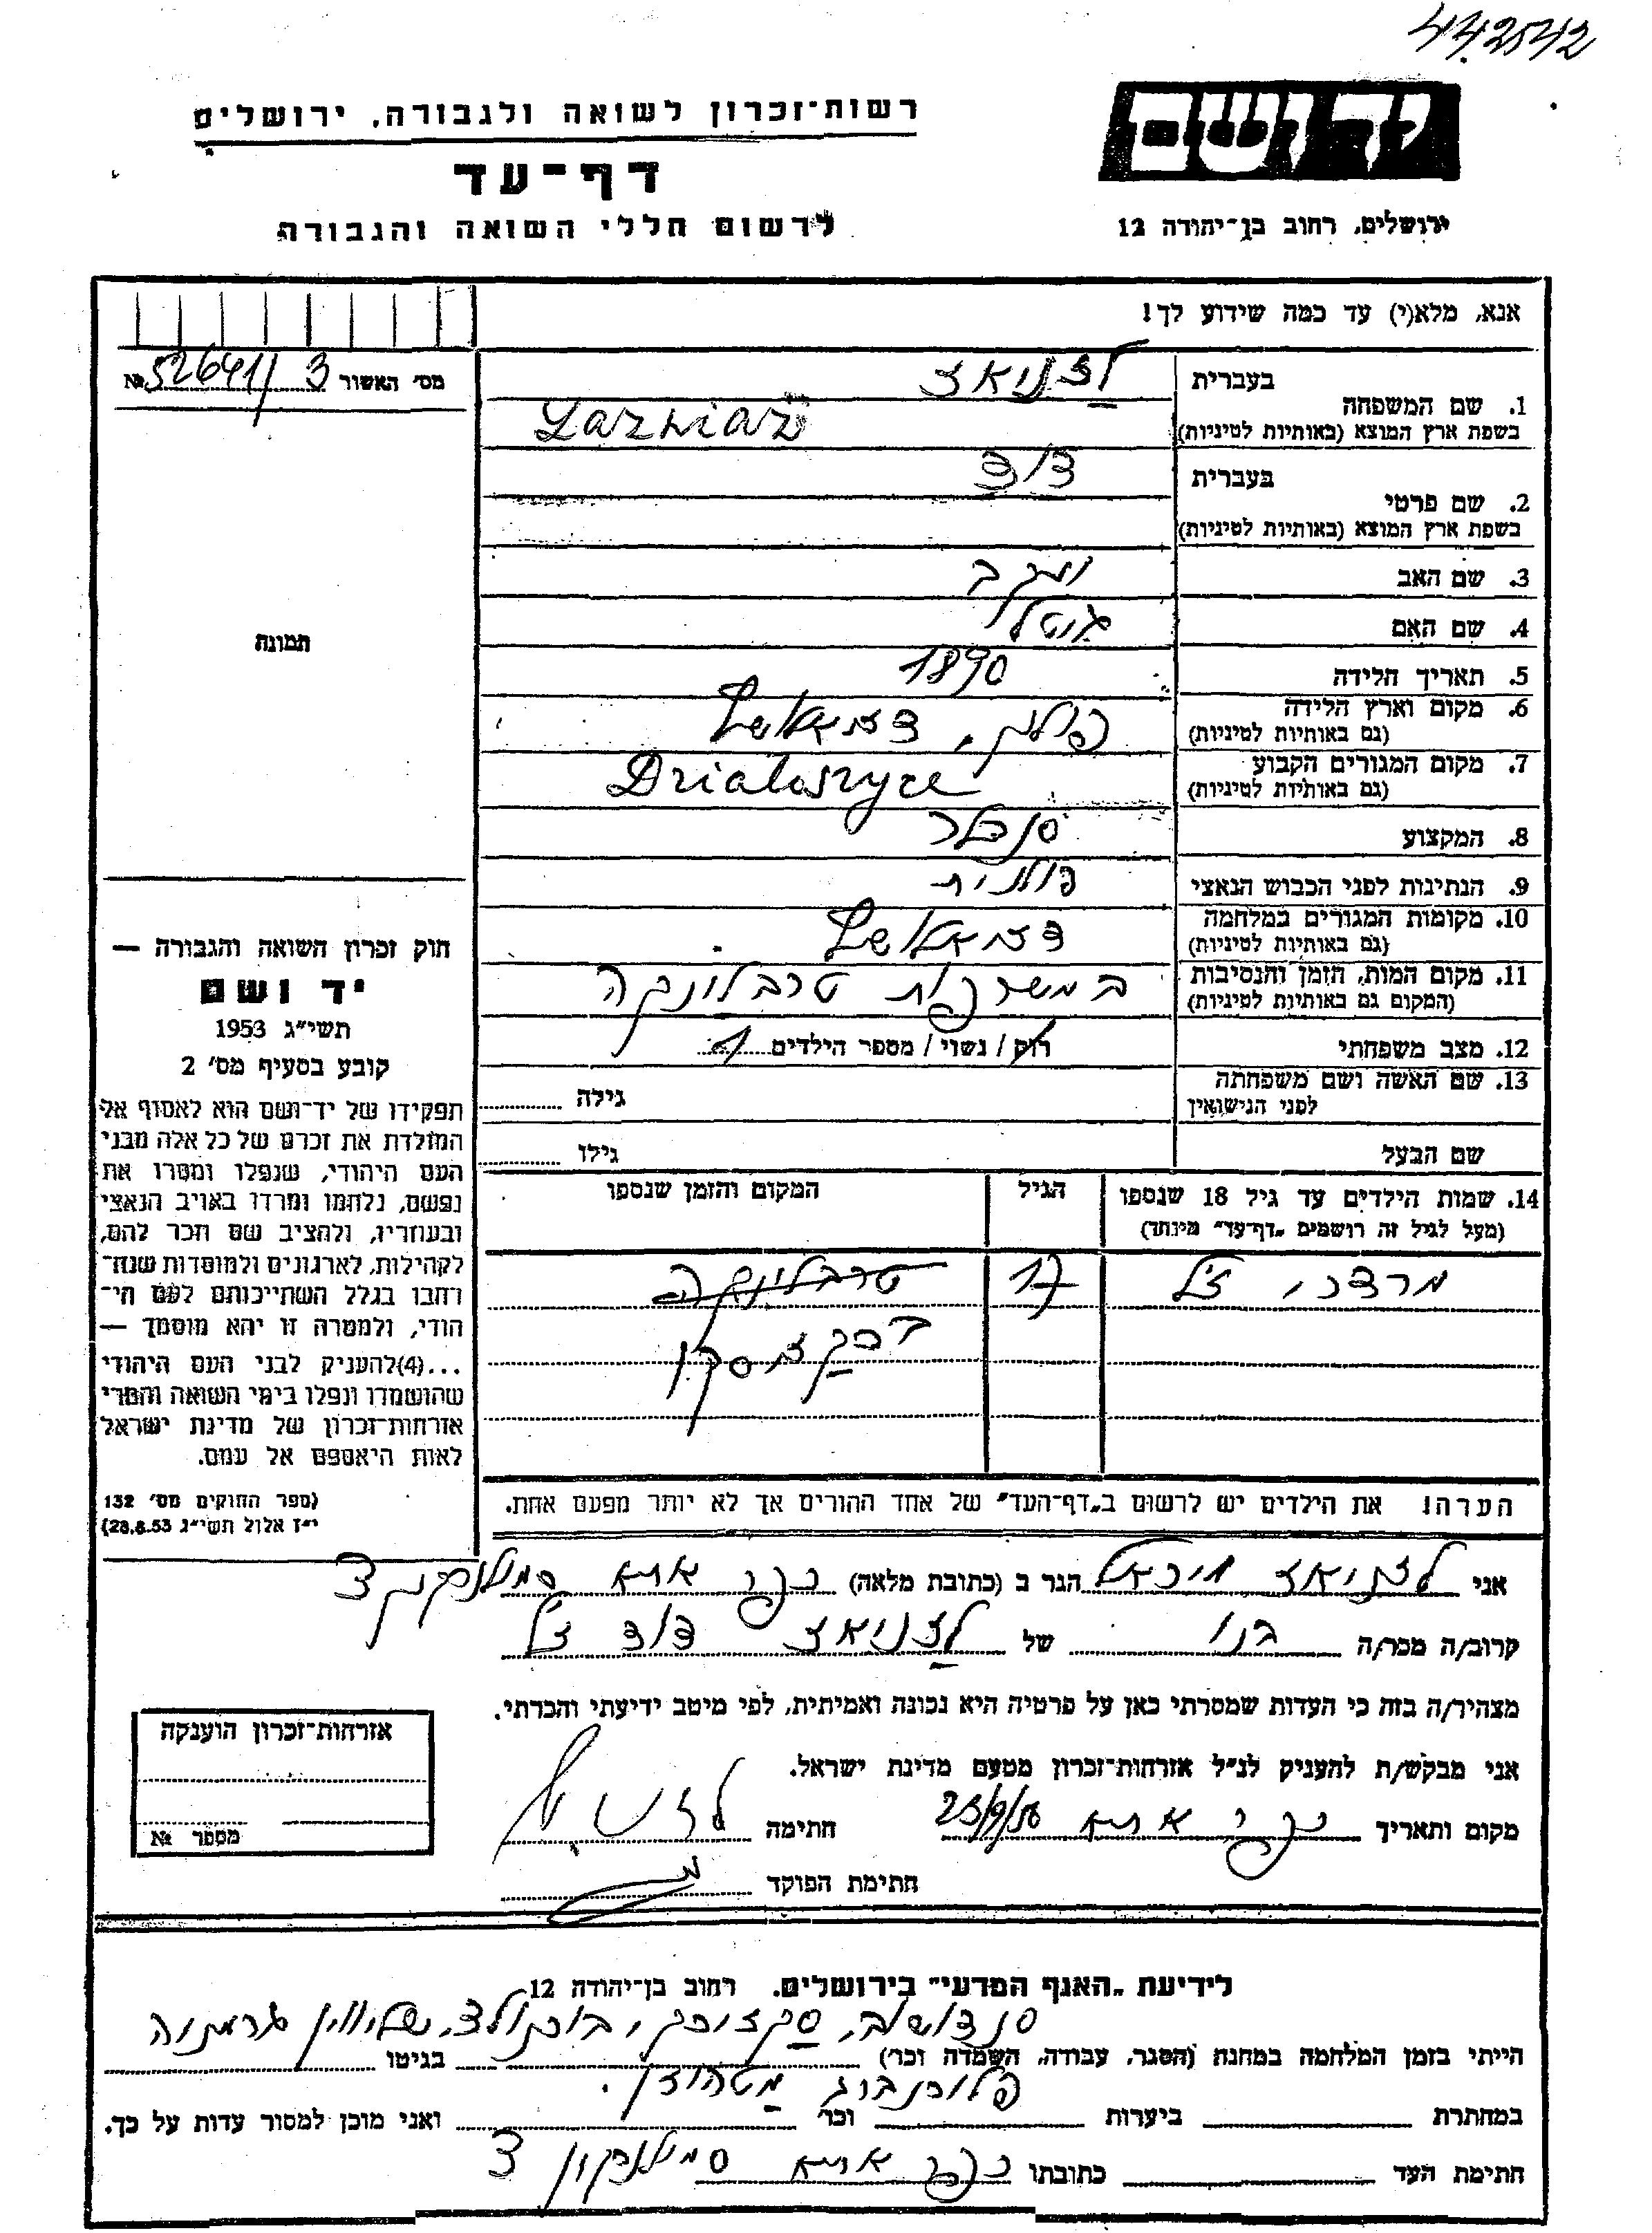 442542
רשות־זכרון לשואה ולגבורה, ירושלים
דף־עד
לרשום חללי השואה והגבורה
יד ושם
ירושלים, רחוב בן־יהודה 12
אנא, מלא(י) עד כמה שידוע לך!
מס׳ האשור 52641/3 №
תמונה
1. שם המשפחה
בעברית לזניאז
בשפת ארץ המוצא (באותיות לטיניות) Lazniaz
2. שם פרטי
בעברית דוד
בשפת ארץ המוצא (באותיות לטיניות)
3. שם האב יעקב
4. שם האם גיטל
5. תאריך הלידה 1890
6. מקום וארץ הלידה פולין,
(גם באותיות לטיניות)
7. מקום המגורים הקבוע Dzialoszyce
(גם באותיות לטיניות)
8. המקצוע סנדלר
9. הנתינות לפני הכבוש הנאצי פולנית
10. מקומות המגורים במלחמה
(גם באותיות לטיניות)
11. מקום המות, הזמן והנסיבות במשרפות טרבלינקה
(המקום גם באותיות לטיניות)
12. מצב משפחתי רוק / נשוי / מספר הילדים 1
13. שם האשה ושם משפחתה גילה
לפני הנישואין
שם הבעל גילו
14. שמות הילדים עד גיל 18 שנספו הגיל המקום והזמן שנספו
(מעל לגיל זה רושמים „דף־עד״ מיוחד)
מרדכי ז״ל 17 טרבלינקה
הערה! את הילדים יש לרשום ב„דף־העד״ של אחד ההורים אך לא יותר מפעם אחת.
חוק זכרון השואה והגבורה —
יד ושם
תשי״ג 1953
קובע בסעיף מס׳ 2
תפקידו של יד־ושם הוא לאסוף אל
המולדת את זכרם של כל אלה מבני
העם היהודי, שנפלו ומסרו את
נפשם, נלחמו ומרדו באויב הנאצי
ובעוזריו, ולהציב שם וזכר להם,
לקהילות, לארגונים ולמוסדות שנח־
רבו בגלל השתייכותם לעם הי־
הודי, ולמטרה זו יהא מוסמך —
...(4)להעניק לבני העם היהודי
שהושמדו ונפלו בימי השואה והמרי
אזרחות־זכרון של מדינת ישראל
לאות היאספם אל עמם.
(ספר החוקים מס׳ 132
י״ז אלול תשי״ג 28.8.53)
אני לזניאז מיכאל הגר ב (כתובת מלאה) כפר אתא סמילנקין 3
קרוב/ה מכר/ה בנו של לזניאז דוד ז״ל
מצהיר/ה בזה כי העדות שמסרתי כאן על פרטיה היא נכונה ואמיתית, לפי מיטב ידיעתי והכרתי.
אני מבקש/ת להעניק לנ״ל אזרחות־זכרון מטעם מדינת ישראל.
מקום ותאריך כפר אתא חתימה
חתימת הפוקד
אזרחות־זכרון הוענקה
מספר №
לידיעת „האגף המדעי״ בירושלים. רחוב בן־יהודה 12
הייתי בזמן המלחמה במחנה (הסגר, עבודה, השמדה וכר) בגיטו
במחתרת ביערות וכר ואני מוכן למסור עדות על כך.
חתימת העד כתובתו כפר אתא סמילנקין 3